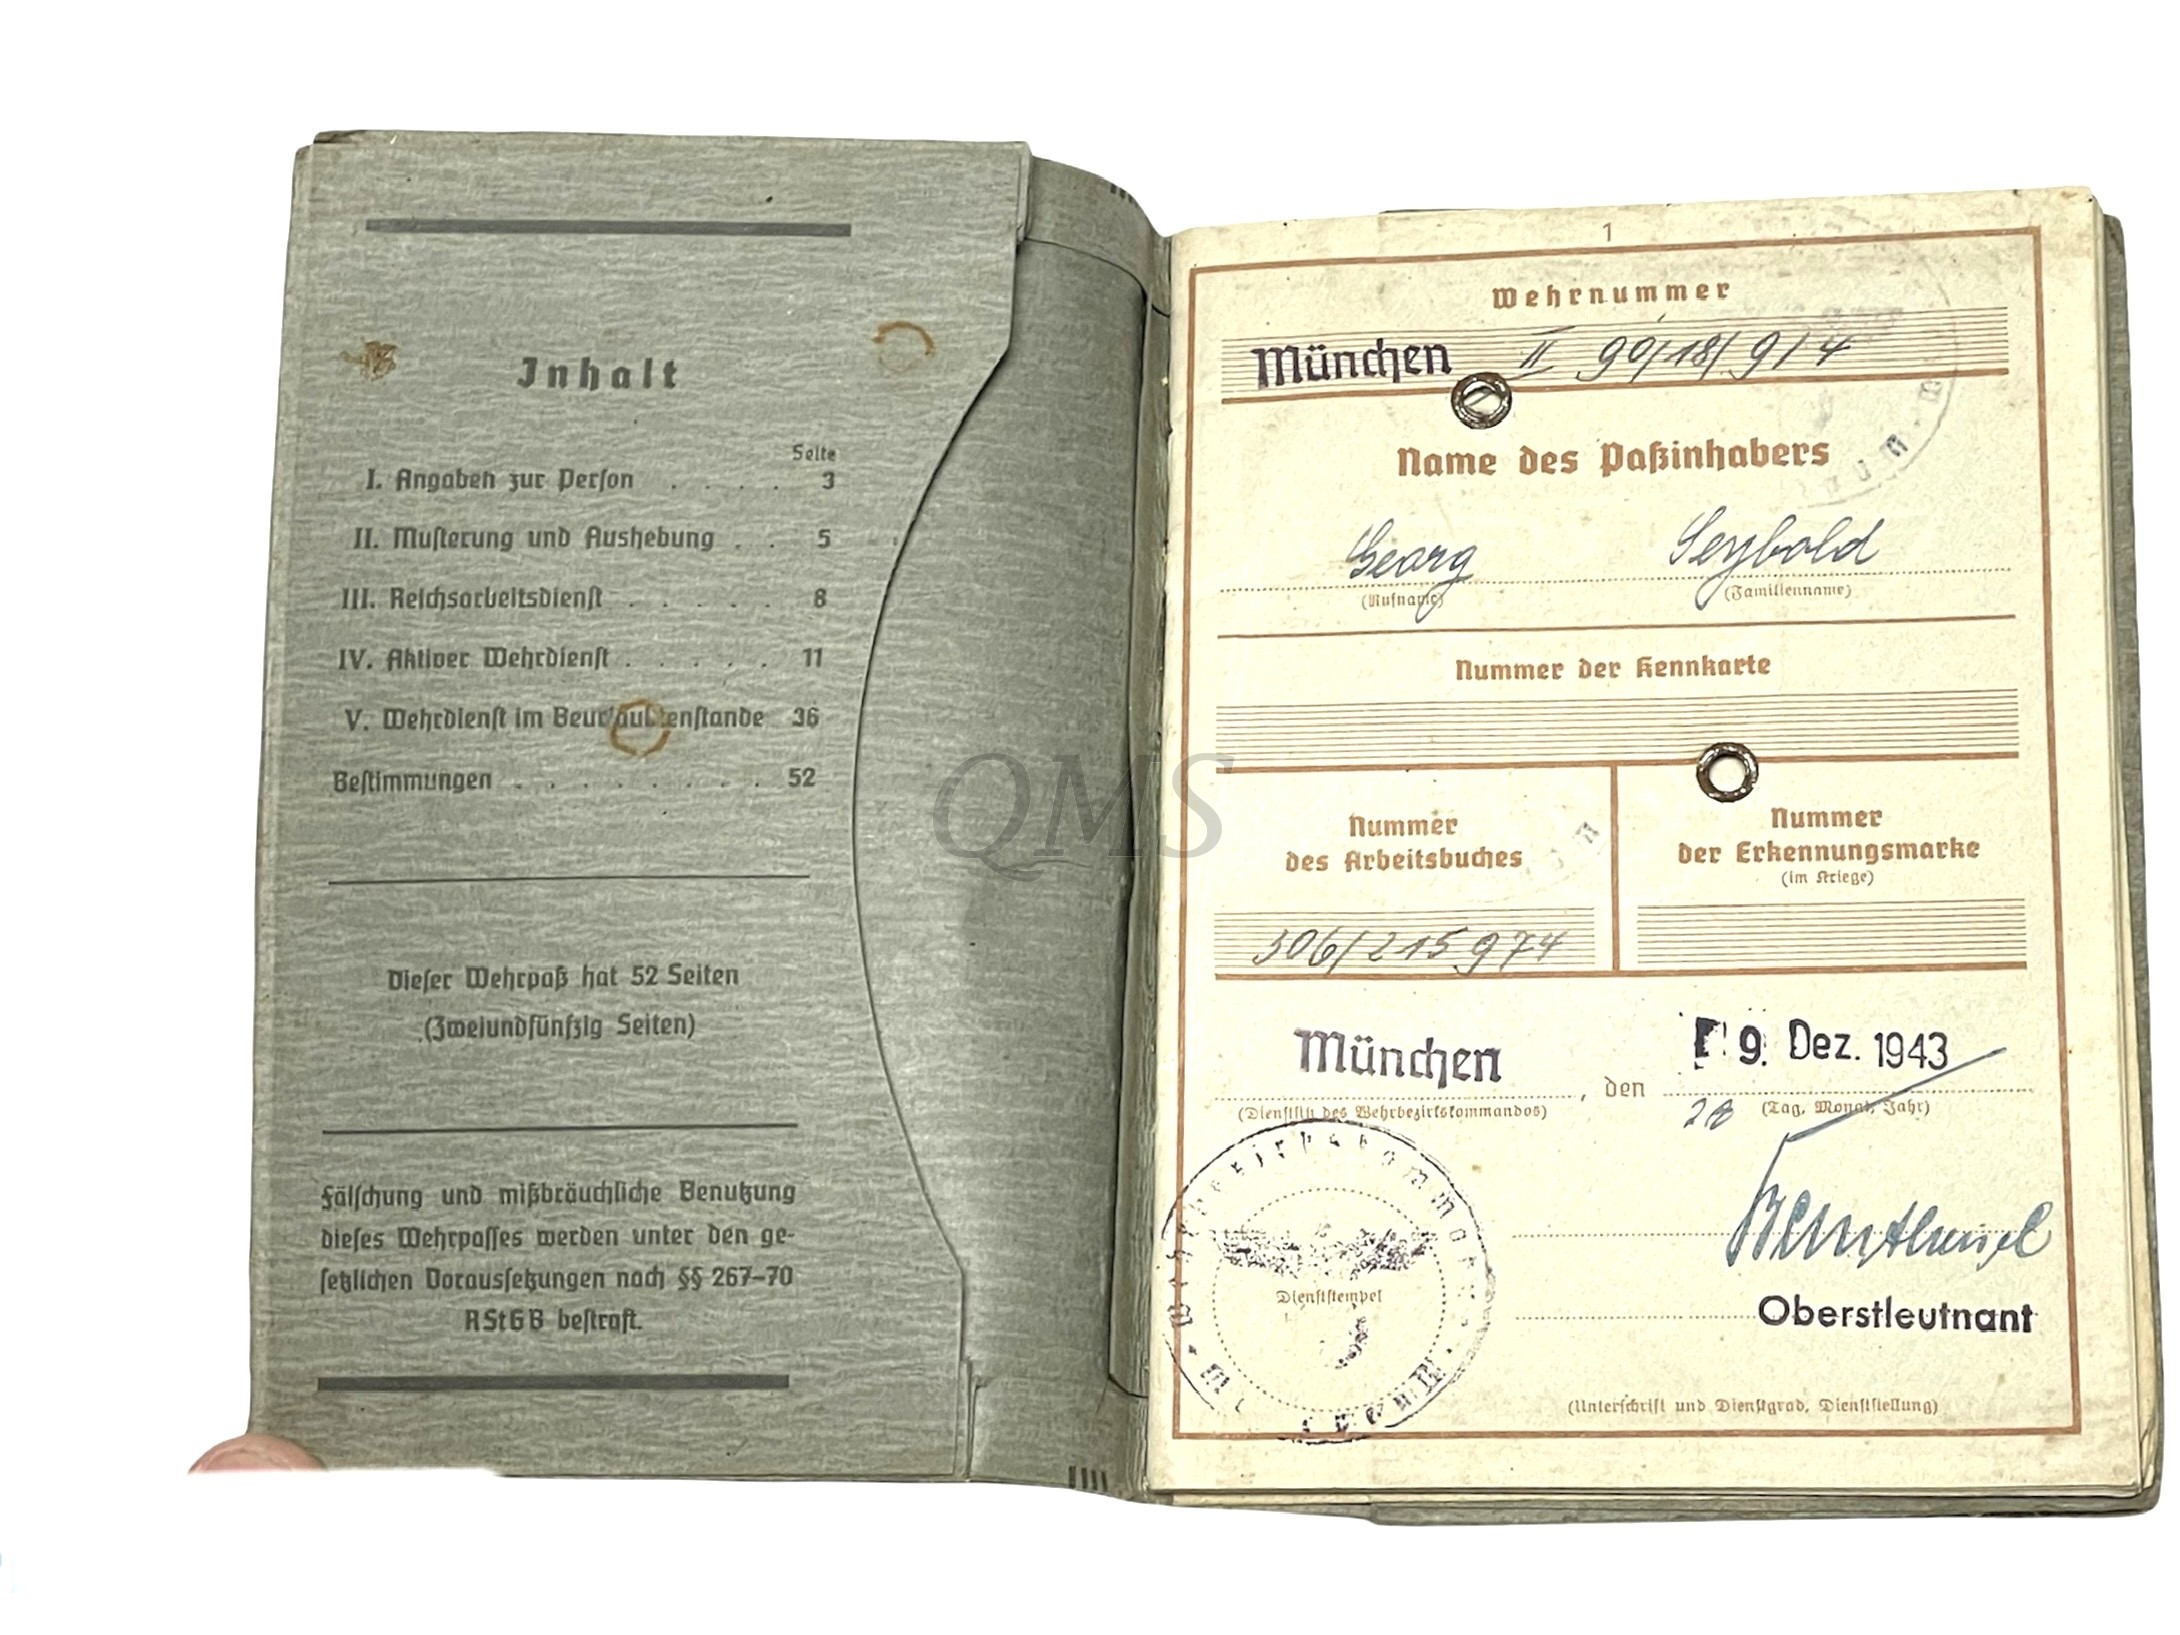 Inhalt
Seite
I. Angaben zur Person . . . . 3
II. Musterung und Aushebung . . 5
III. Reichsarbeitsdienst . . . . . 8
IV. Aktiver Wehrdienst . . . . . 11
V. Wehrdienst im Beurlaubtenstande 36
Bestimmungen . . . . . . . . 52
Dieser Wehrpaß hat 52 Seiten
(Zweiundfünfzig Seiten)
Fälschung und mißbräuchliche Benutzung
dieses Wehrpasses werden unter den ge-
setzlichen Voraussetzungen nach §§ 267–70
RStGB bestraft.
QMS
1
Wehrnummer
München II 90/18/9/4
Name des Paßinhabers
Georg Seybold
(Rufname) (Familienname)
Nummer der Kennkarte
Nummer
des Arbeitsbuches
306/215974
Nummer
der Erkennungsmarke
(im Kriege)
München, den 9. Dez. 1943
(Dienstsitz des Wehrbezirkskommandos) (Tag, Monat, Jahr)
Dienststempel
Oberstleutnant
(Unterschrift und Dienstgrad, Dienststellung)